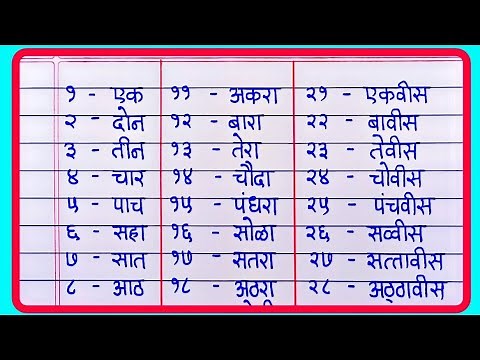 १ - एक ११ - अकरा २१ - एकवीस
२ - दोन १२ - बारा २२ - बावीस
३ - तीन १३ - तेरा २३ - तेवीस
४ - चार १४ - चौदा २४ - चोवीस
५ - पाच १५ - पंधरा २५ - पंचवीस
६ - सहा १६ - सोळा २६ - सव्वीस
७ - सात १७ - सतरा २७ - सत्तावीस
८ - आठ १८ - अठरा २८ - अठ्ठावीस